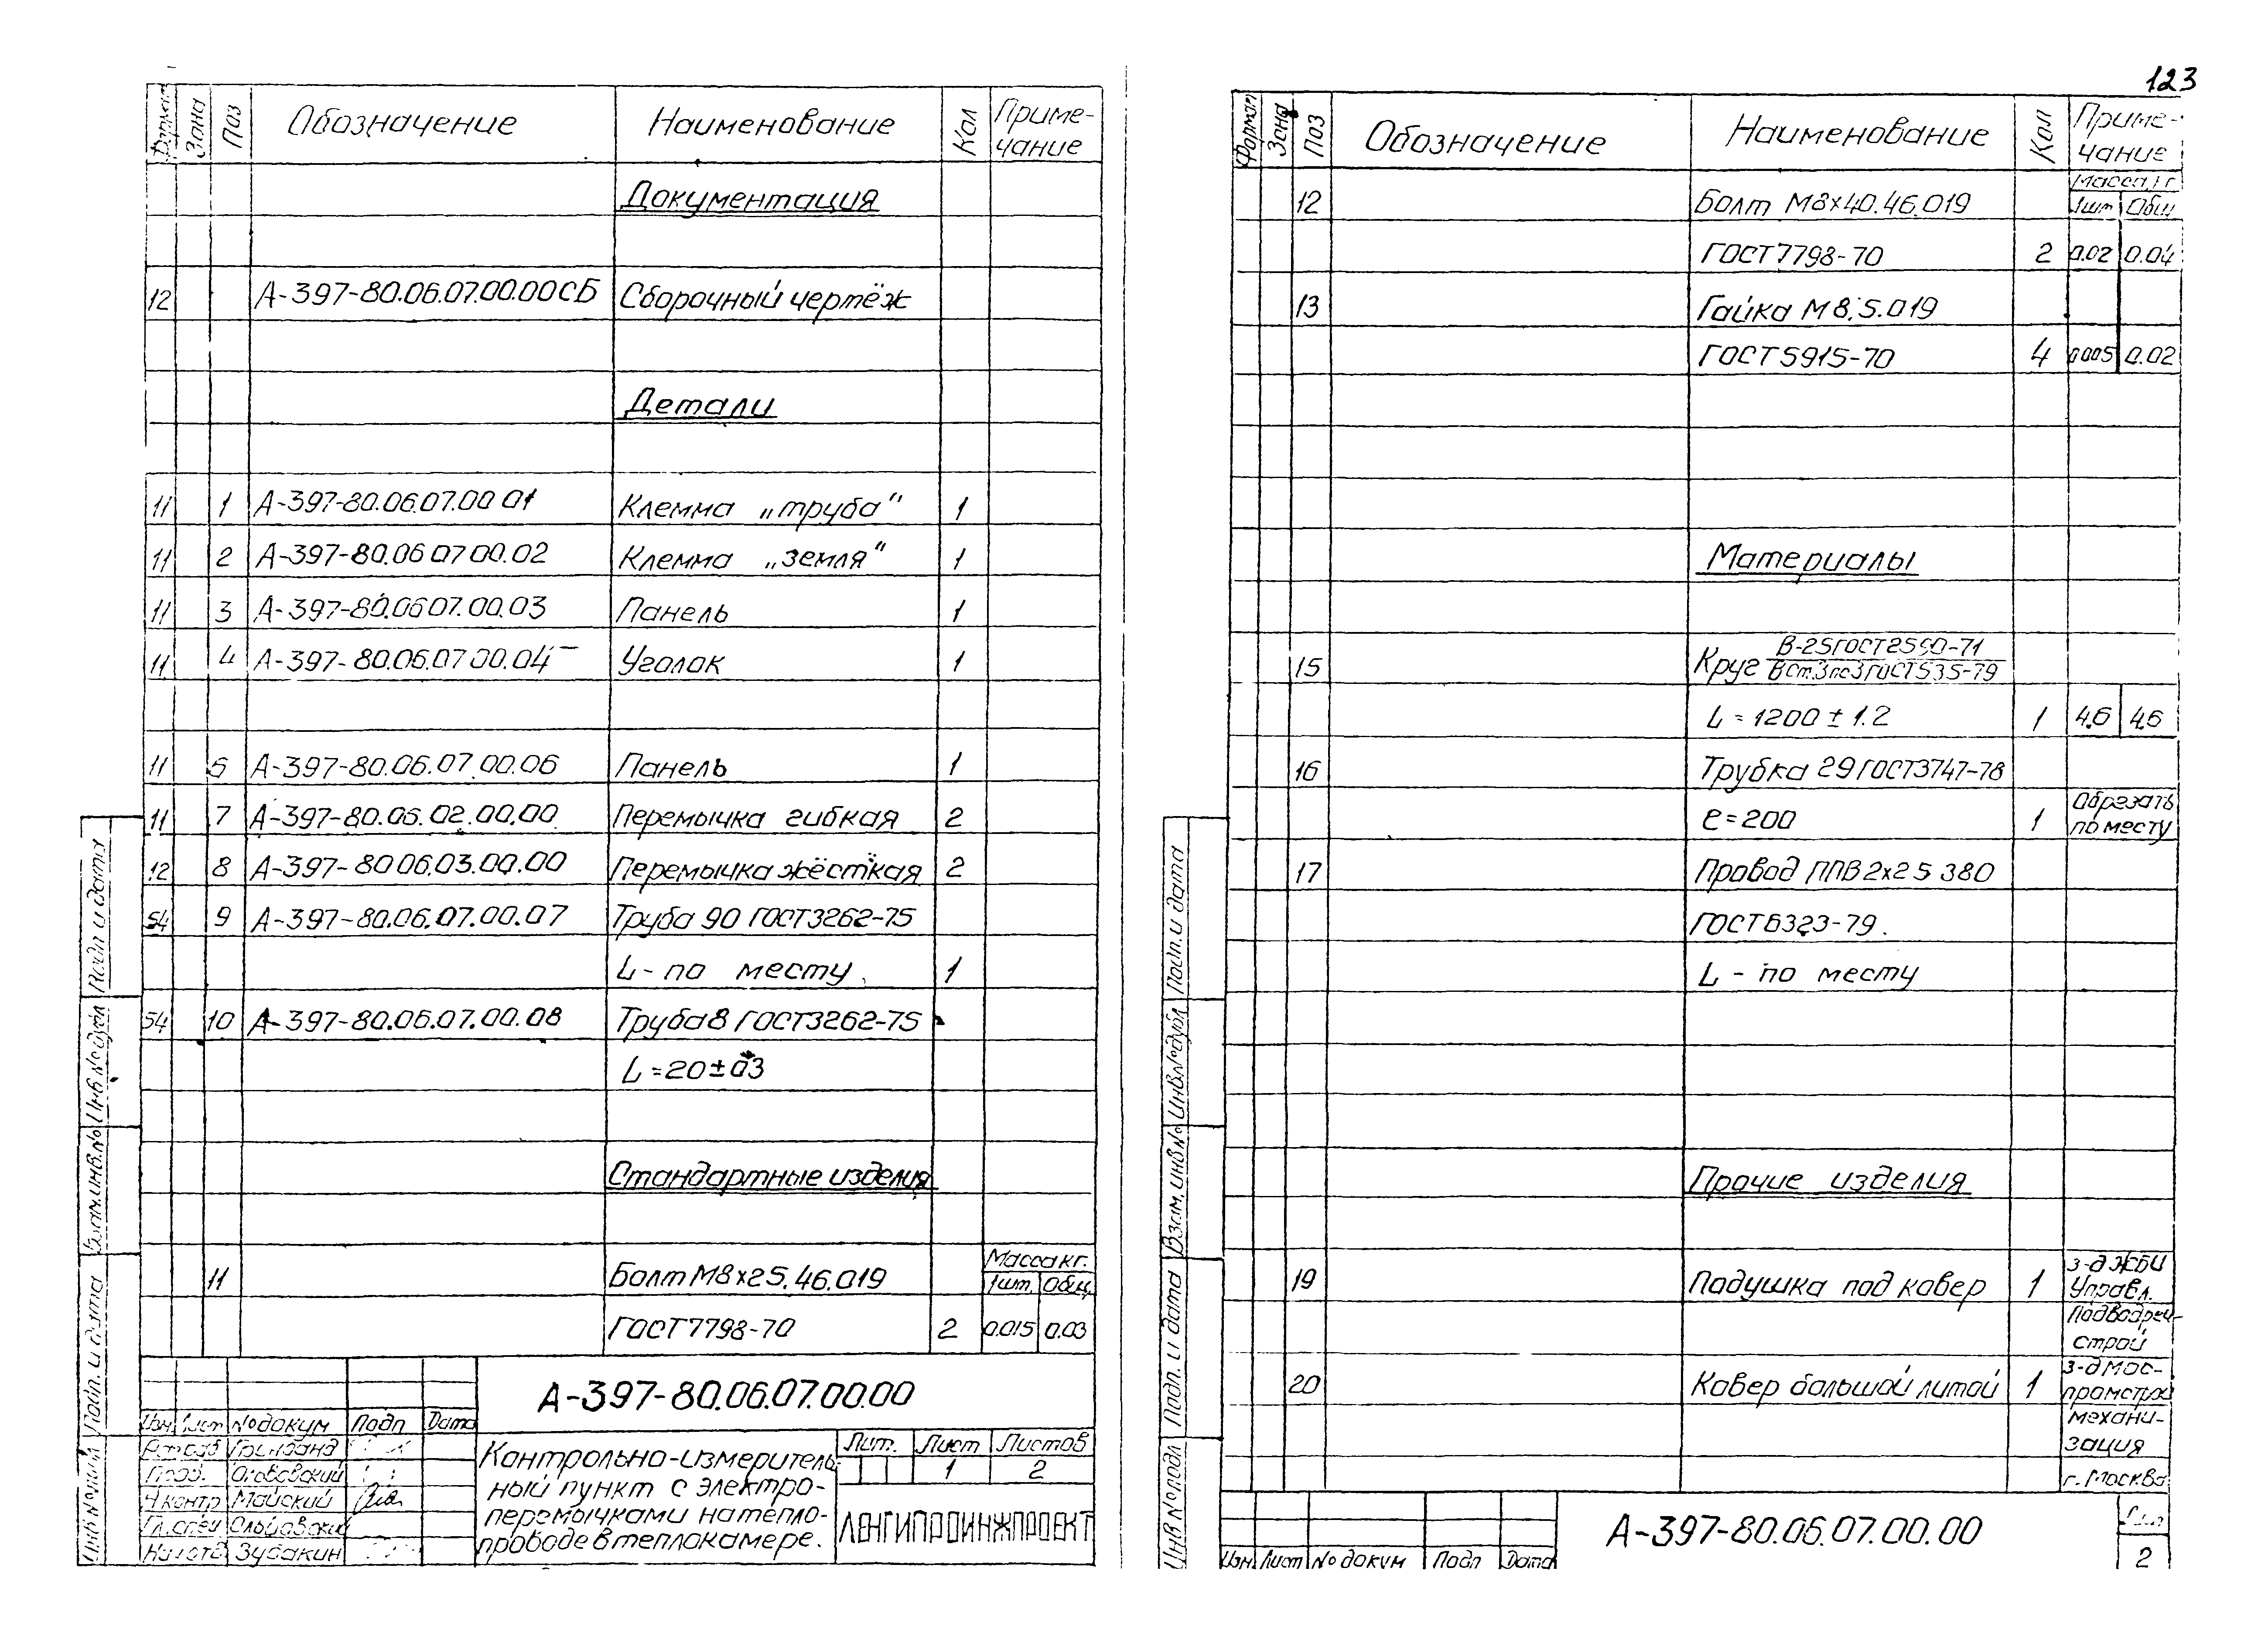 123
Формат Зона Поз Обозначение Наименование Кол Приме-
чание
Документация
12 А-397-80.06.07.00.00СБ Сборочный чертёж
Детали
11 1 А-397-80.06.07.00 01 Клемма „труба“ 1
11 2 А-397-80.06 07 00.02 Клемма „земля“ 1
11 3 А-397-80.06 07.00.03 Панель 1
11 4 А-397-80.06.07 00.04 Уголок 1
11 6 А-397-80.06.07.00.06 Панель 1
11 7 А-397-80.06.02.00.00 Перемычка гибкая 2
12 8 А-397-80 06.03.00.00 Перемычка жёсткая 2
54 9 А-397-80.06.07.00.07 Труба 90 ГОСТ3262-75
L - по месту 1
54 10 А-397-80.06.07.00.08 Труба 8 ГОСТ3262-75
L = 20 ± 03
Стандартные изделия
Масса кг.
11 Болт М8×25.46.019 1шт. Общ.
ГОСТ7798-70 2 0.015 0.03
А-397-80.06.07.00.00
Изм Лист № докум Подп Дата
Контрольно-измеритель-
ный пункт с электро-
перемычками на тепло-
проводе в теплокамере.
Лит. Лист Листов
1 2
Разраб Гринданд
Пров.
Н контр Майский
Гл.спец
Нач отд Зубакин
ЛЕНГИПРОИНЖПРОЕКТ
Подп и дата
Инв № дубл
Взам.инв.№
Подп. и дата
Инв № подл
Формат Зона Поз Обозначение Наименование Кол Приме-
чание
Масса, кг
12 Болт М8×40.46.019 1шт Общ
ГОСТ7798-70 2 0.02 0.04
13 Гайка М8.5.019
ГОСТ5915-70 4 0005 0.02
Материалы
15 Круг В-25 ГОСТ2590-71
ВСт.3пс3 ГОСТ535-79
L = 1200 ± 1.2 1 4,6 4,6
16 Трубка 29 ГОСТ3747-78
ℓ = 200 1 Обрезать
по месту
17 Провод ППВ 2×2 5 380
ГОСТ6323-79.
L - по месту
Прочие изделия
19 Подушка под ковер 1 з-д ЖБИ
Управл.
Подводреч-
строй
20 Ковер большой литой 1 з-д Мос-
механи-
зация
г. Москва
А-397-80.06.07.00.00
Изм Лист № докум Подп Дата
2
Подп. и дата
Инв № дубл
Взам. инв №
Подп. и дата
Инв № подл